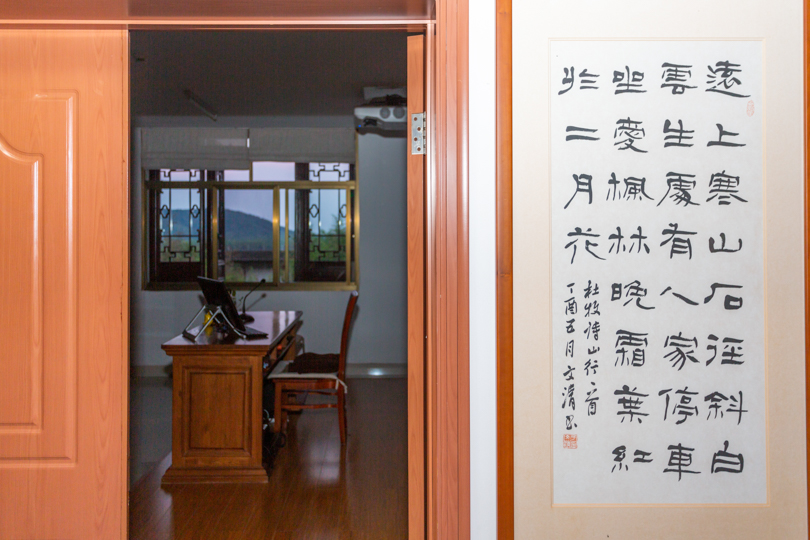 遠上寒山石徑斜白
雲生處有人家停車
坐愛楓林晚霜葉紅
於二月花
杜牧詩山行一首
丁酉五月文清書